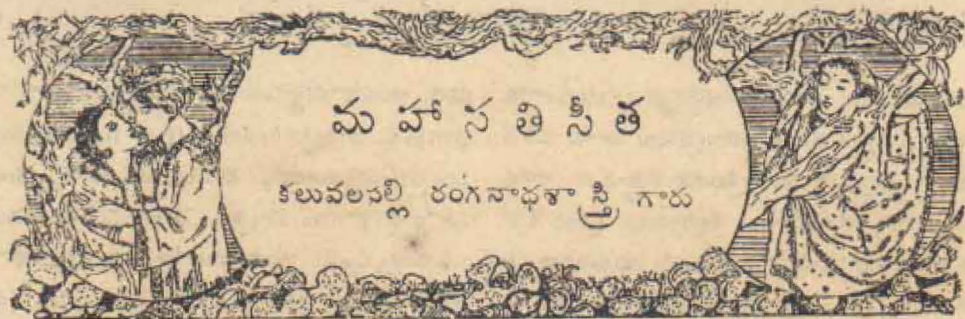 మహాసతిసీత
కలువలనల్లి రంగనాథశాస్త్రి గారు